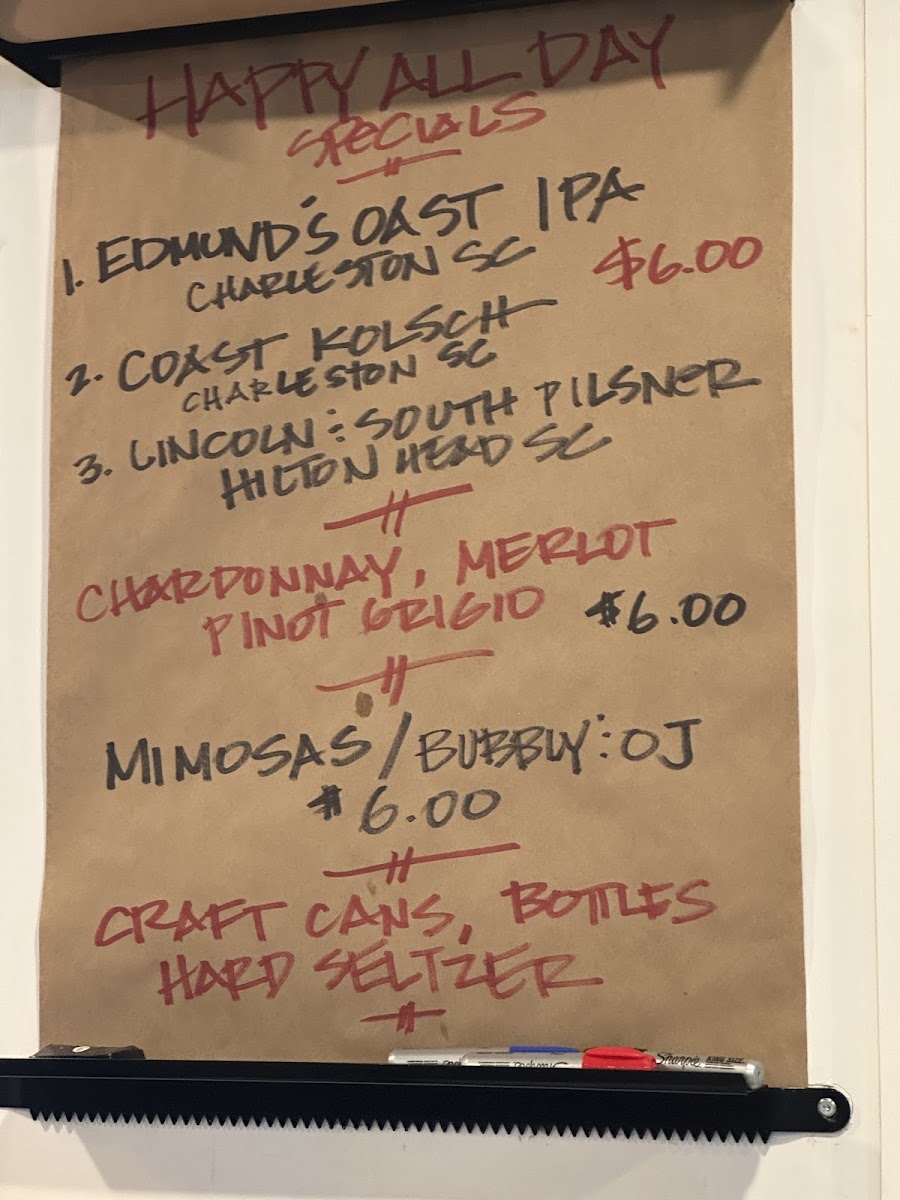 HAPPY ALL DAY
SPECIALS
1. EDMUND'S OAST IPA
CHARLESTON SC $6.00
2. COAST KOLSCH
CHARLESTON SC
3. LINCOLN : SOUTH PILSNER
HILTON HEAD SC
CHARDONNAY, MERLOT
PINOT GRIGIO $6.00
MIMOSAS / BUBBLY : OJ
$6.00
CRAFT CANS, BOTTLES
HARD SELTZER
Sharpie KING SIZE